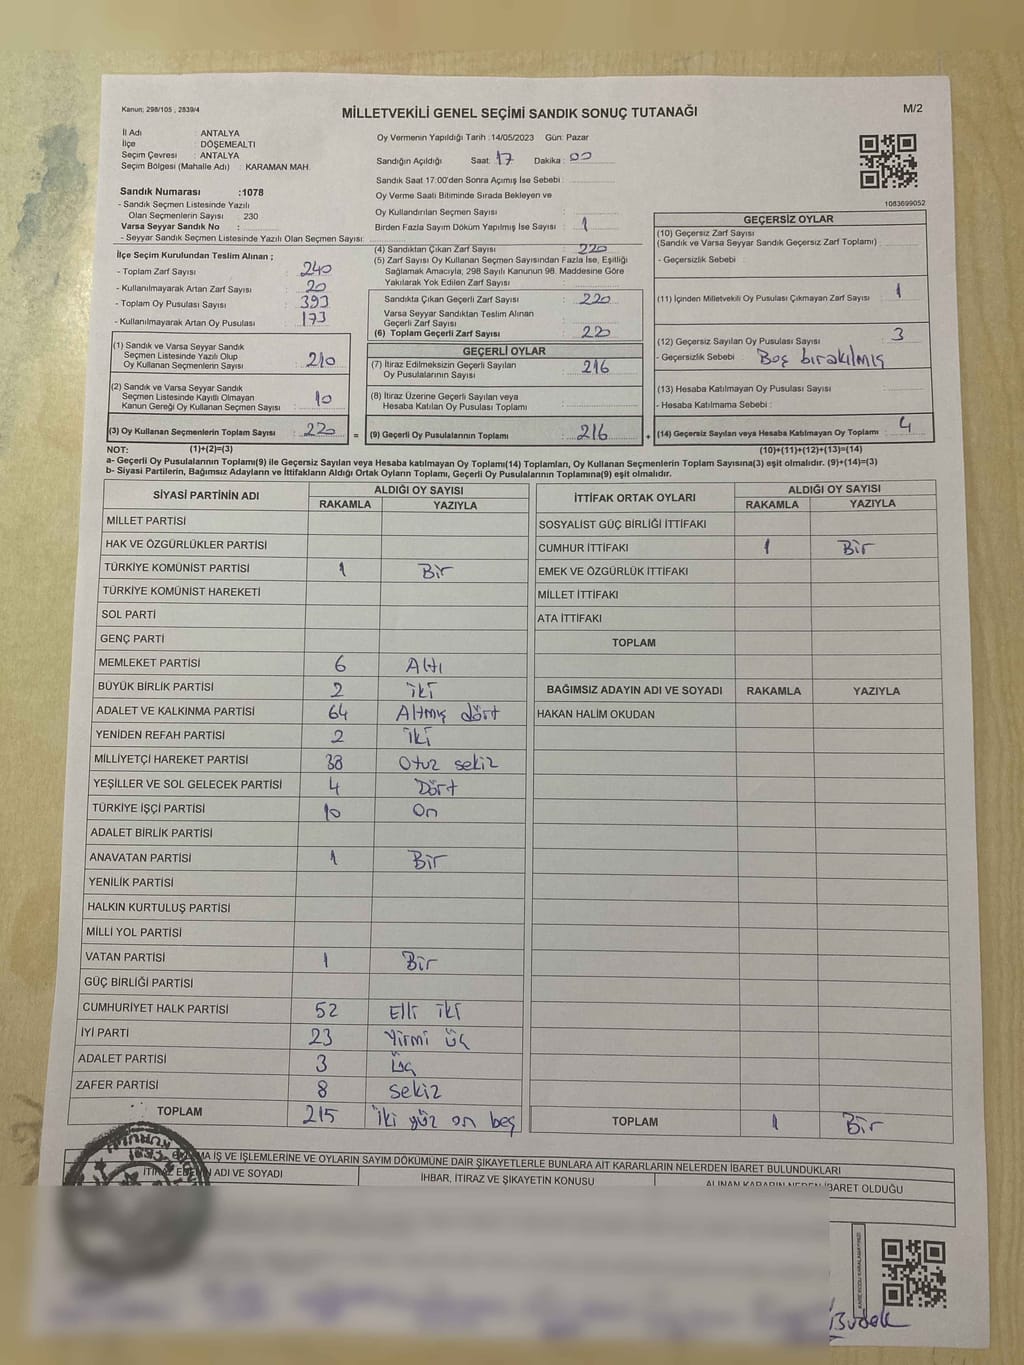 Kanun; 298/105 , 2839/4
MİLLETVEKİLİ GENEL SEÇİMİ SANDIK SONUÇ TUTANAĞI
M/2
İl Adı : ANTALYA
İlçe : DÖŞEMEALTI
Seçim Çevresi : ANTALYA
Seçim Bölgesi (Mahalle Adı) : KARAMAN MAH.
Sandık Numarası :1078
- Sandık Seçmen Listesinde Yazılı
Olan Seçmenlerin Sayısı : 230
Varsa Seyyar Sandık No :
- Seyyar Sandık Seçmen Listesinde Yazılı Olan Seçmen Sayısı:
Oy Vermenin Yapıldığı Tarih :14/05/2023 Gün: Pazar
Sandığın Açıldığı Saat: 17 Dakika : 00
Sandık Saat 17:00'den Sonra Açımış İse Sebebi :
Oy Verme Saati Bitiminde Sırada Bekleyen ve
Oy Kullandırılan Seçmen Sayısı :
Birden Fazla Sayım Döküm Yapılmış İse Sayısı : 1
1083699052
İlçe Seçim Kurulundan Teslim Alınan ;
- Toplam Zarf Sayısı : 240
- Kullanılmayarak Artan Zarf Sayısı : 20
- Toplam Oy Pusulası Sayısı : 393
- Kullanılmayarak Artan Oy Pusulası : 173
(1) Sandık ve Varsa Seyyar Sandık
Seçmen Listesinde Yazılı Olup
Oy Kullanan Seçmenlerin Sayısı : 210
(2) Sandık ve Varsa Seyyar Sandık
Seçmen Listesinde Kayıtlı Olmayan
Kanun Gereği Oy Kullanan Seçmen Sayısı : 10
(3) Oy Kullanan Seçmenlerin Toplam Sayısı : 220
(4) Sandıktan Çıkan Zarf Sayısı : 220
(5) Zarf Sayısı Oy Kullanan Seçmen Sayısından Fazla İse, Eşitliği
Sağlamak Amacıyla, 298 Sayılı Kanunun 98. Maddesine Göre
Yakılarak Yok Edilen Zarf Sayısı :
Sandıkta Çıkan Geçerli Zarf Sayısı : 220
Varsa Seyyar Sandıktan Teslim Alınan
Geçerli Zarf Sayısı :
(6) Toplam Geçerli Zarf Sayısı : 220
GEÇERLİ OYLAR
(7) İtiraz Edilmeksizin Geçerli Sayılan
Oy Pusulalarının Sayısı : 216
(8) İtiraz Üzerine Geçerli Sayılan veya
Hesaba Katılan Oy Pusulası Toplamı :
= (9) Geçerli Oy Pusulalarının Toplamı : 216
GEÇERSİZ OYLAR
(10) Geçersiz Zarf Sayısı
(Sandık ve Varsa Seyyar Sandık Geçersiz Zarf Toplamı) :
- Geçersizlik Sebebi :
(11) İçinden Milletvekili Oy Pusulası Çıkmayan Zarf Sayısı : 1
(12) Geçersiz Sayılan Oy Pusulası Sayısı : 3
- Geçersizlik Sebebi : Boş bırakılmış
(13) Hesaba Katılmayan Oy Pusulası Sayısı :
- Hesaba Katılmama Sebebi :
+ (14) Geçersiz Sayılan veya Hesaba Katılmayan Oy Toplamı : 4
NOT: (1)+(2)=(3) (10)+(11)+(12)+(13)=(14)
a- Geçerli Oy Pusulalarının Toplamı(9) ile Geçersiz Sayılan veya Hesaba katılmayan Oy Toplamı(14) Toplamları, Oy Kullanan Seçmenlerin Toplam Sayısına(3) eşit olmalıdır. (9)+(14)=(3)
b- Siyasi Partilerin, Bağımsız Adayların ve İttifakların Aldığı Ortak Oyların Toplamı, Geçerli Oy Pusulalarının Toplamına(9) eşit olmalıdır.
SİYASİ PARTİNİN ADI ALDIĞI OY SAYISI
RAKAMLA YAZIYLA
MİLLET PARTİSİ
HAK VE ÖZGÜRLÜKLER PARTİSİ
TÜRKİYE KOMÜNİST PARTİSİ 1 Bir
TÜRKİYE KOMÜNİST HAREKETİ
SOL PARTİ
GENÇ PARTİ
MEMLEKET PARTİSİ 6 Altı
BÜYÜK BİRLİK PARTİSİ 2 iki
ADALET VE KALKINMA PARTİSİ 64 Altmış dört
YENİDEN REFAH PARTİSİ 2 iki
MİLLİYETÇİ HAREKET PARTİSİ 38 Otuz sekiz
YEŞİLLER VE SOL GELECEK PARTİSİ 4 Dört
TÜRKİYE İŞÇİ PARTİSİ 10 On
ADALET BİRLİK PARTİSİ
ANAVATAN PARTİSİ 1 Bir
YENİLİK PARTİSİ
HALKIN KURTULUŞ PARTİSİ
MİLLİ YOL PARTİSİ
VATAN PARTİSİ 1 Bir
GÜÇ BİRLİĞİ PARTİSİ
CUMHURİYET HALK PARTİSİ 52 Elli iki
İYİ PARTİ 23 Yirmi üç
ADALET PARTİSİ 3 üç
ZAFER PARTİSİ 8 sekiz
TOPLAM 215 iki yüz on beş
İTTİFAK ORTAK OYLARI ALDIĞI OY SAYISI
RAKAMLA YAZIYLA
SOSYALİST GÜÇ BİRLİĞİ İTTİFAKI
CUMHUR İTTİFAKI 1 Bir
EMEK VE ÖZGÜRLÜK İTTİFAKI
MİLLET İTTİFAKI
ATA İTTİFAKI
TOPLAM
BAĞIMSIZ ADAYIN ADI VE SOYADI RAKAMLA YAZIYLA
HAKAN HALİM OKUDAN
TOPLAM 1 Bir
İŞ VE İŞLEMLERİNE VE OYLARIN SAYIM DÖKÜMÜNE DAİR ŞİKAYETLERLE BUNLARA AİT KARARLARIN NELERDEN İBARET BULUNDUKLARI
İTİRAZ EDENİN ADI VE SOYADI İHBAR, İTİRAZ VE ŞİKAYETİN KONUSU ALINAN KARARIN NEDEN İBARET OLDUĞU